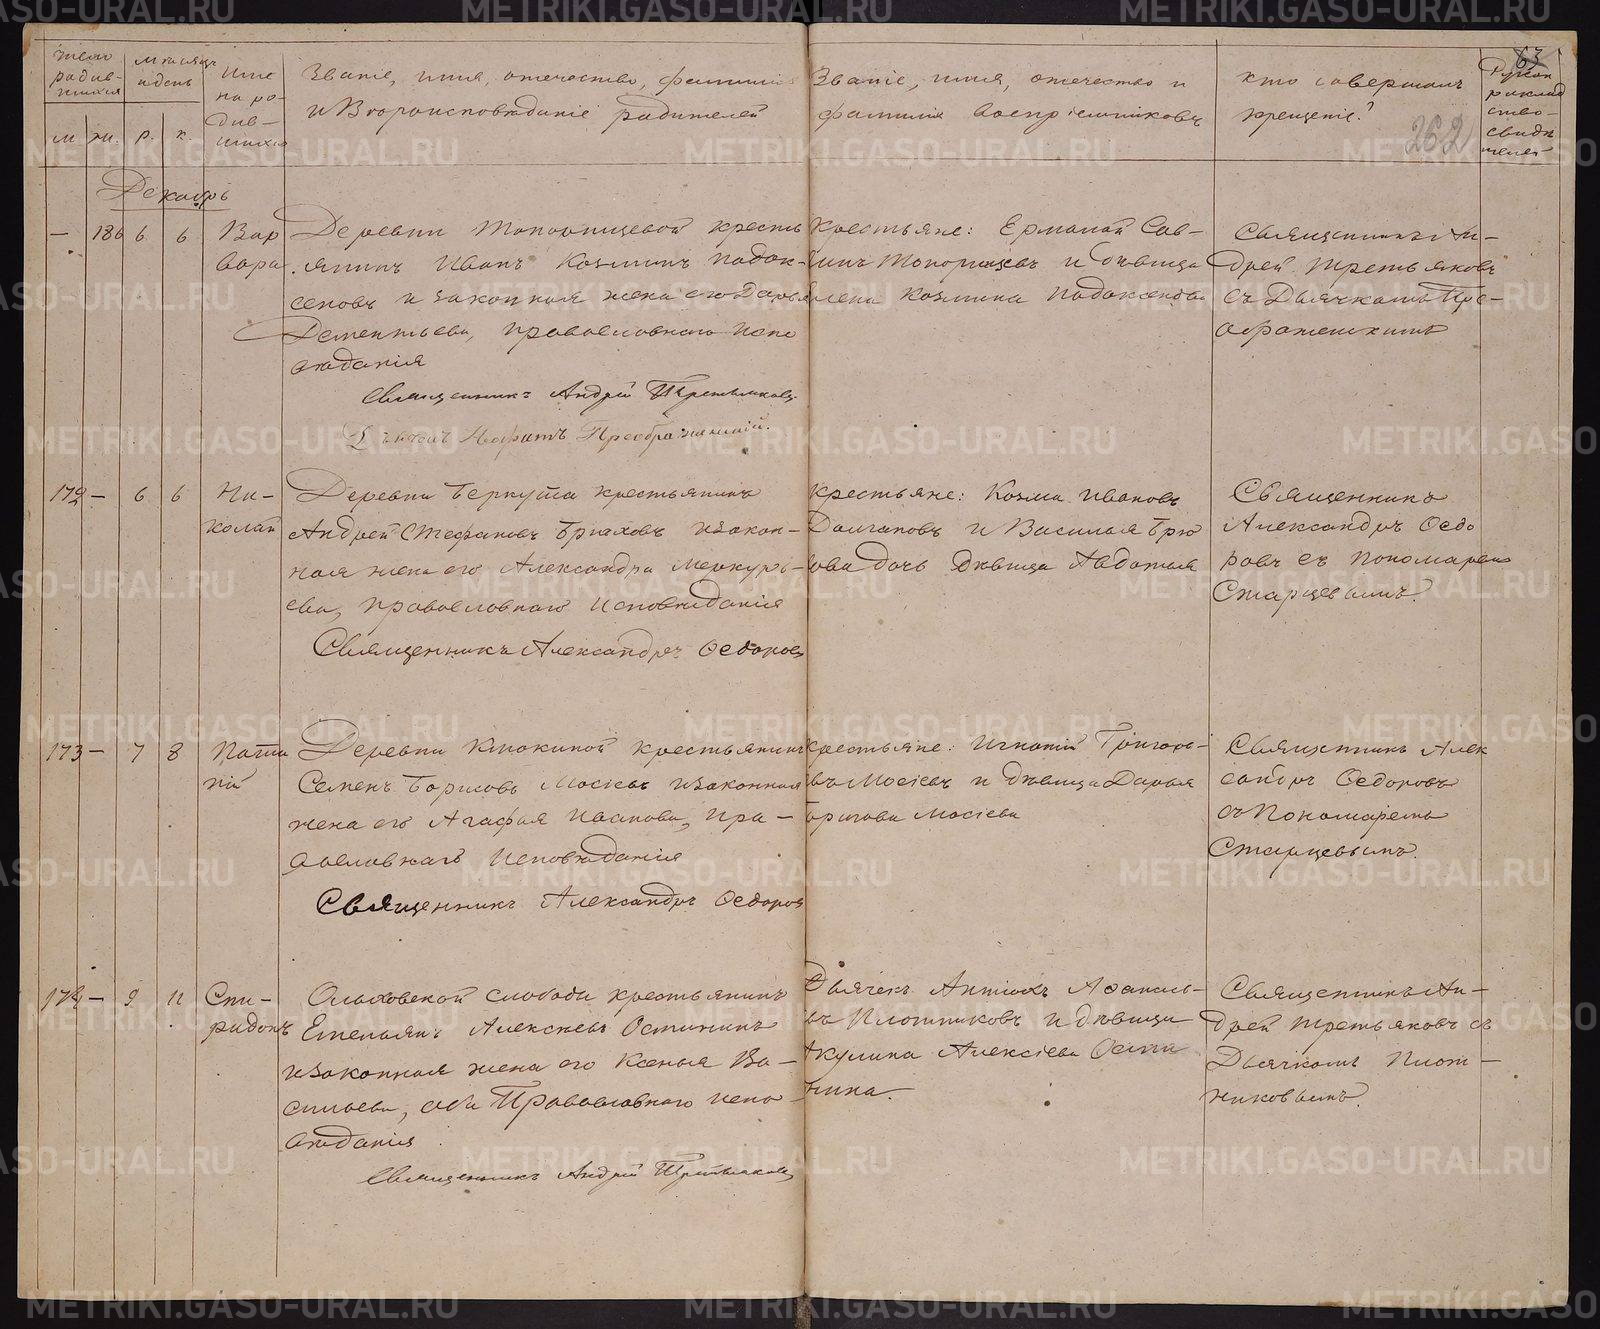 Число родив-шихся
Месяцъ и день
Име на ро-див-шихся
Званіе, имя, отечество, фамилия
и Вероисповѣданіе родителей
Званіе, имя, отечество и
фамилия воспріемниковъ
кто совершалъ
крещеніе?
Рукоприкладство свидѣтелей
63
262
м. ж. р. к.
Декабрь
— 186 6 6
Вар
вара
Деревни Топорищевой кресть
янинъ Иванъ Козминъ Падок-
сеновъ и законная жена его Дарья
Дементьева, православнаго испо
вѣданія
Священникъ Андрей Третьяковъ
Преображенскій.
Крестьяне: Ермолай Сав-
инъ Топорищевъ и дѣвица
Козмина
Священникъ Ан-
дрей Третьяковъ
съ Дьячкомъ Пре-
ображенскимъ
172 — 6 6
Ни-
колай
Деревни Беркутa крестьянинъ
Андрей Стефановъ и закон-
ная жена его Александра Меркурь-
ева, православнаго исповѣданія
Священникъ Александръ Ѳедоровъ
Крестьяне: Козма Ивановъ
Долгановъ и Василья
дочь дѣвица Авдотья
Священникъ
Александръ Ѳедо
ровъ съ Пономаремъ
Старцевымъ.
173 — 7 8
Патаи
пій
Деревни Клюкиной крестьянинъ
Семенъ Борисовъ Мосіевъ и законная
жена его Агафья Иванова, пра-
вославнаго исповѣданія
Священникъ Александръ Ѳедоровъ
Крестьяне: Игнатій Григорь-
въ Мосіевъ и дѣвица Дарья
Борисова Мосіева
Священникъ Алек
сандръ Ѳедоровъ
съ Пономаремъ
Старцевымъ.
174 — 9 11
Спи-
ридонъ
Ольховской слободы крестьянинъ
Емельянъ Алексѣевъ Остининъ
и законная жена его Ксенья Ва-
сильева, оба Православнаго испо
вѣданія
Священникъ Андрей Третьяковъ
Дьячекъ Антіохъ Аѳанась-
въ Плотниковъ и дѣвица
Акулина Алексіева Ости
нина.
Священникъ Ан-
дрей Третьяковъ съ
Дьячкомъ Плот-
никовымъ.
METRIKI.GASO-URAL.RU